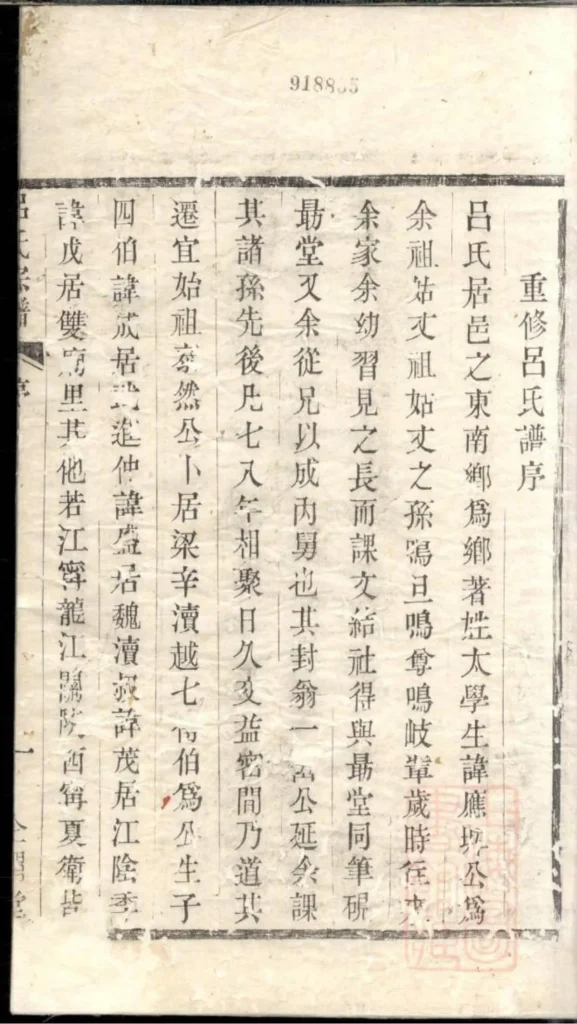 918835
重修呂氏譜序
呂氏居邑之東南鄉爲鄉著姓太學生諱應坊公爲
余祖姑丈祖姑丈之孫鳴旦鳴尊鳴岐輩歲時往
余家余幼習見之長而課文結社得與最堂同筆硯
最堂又余從兄以成內舅也其封翁一公延余課
其諸孫先後凡七八年相聚日久交益密間乃道其
遷宜始祖然公卜居梁辛瀆越七伯爲公生子
四伯諱成居武進仲諱盛居魏瀆叔諱茂居江陰季
諱戊居雙廟里其他若江寧龍江關陝西甯夏衛皆
呂氏宗譜
序
一